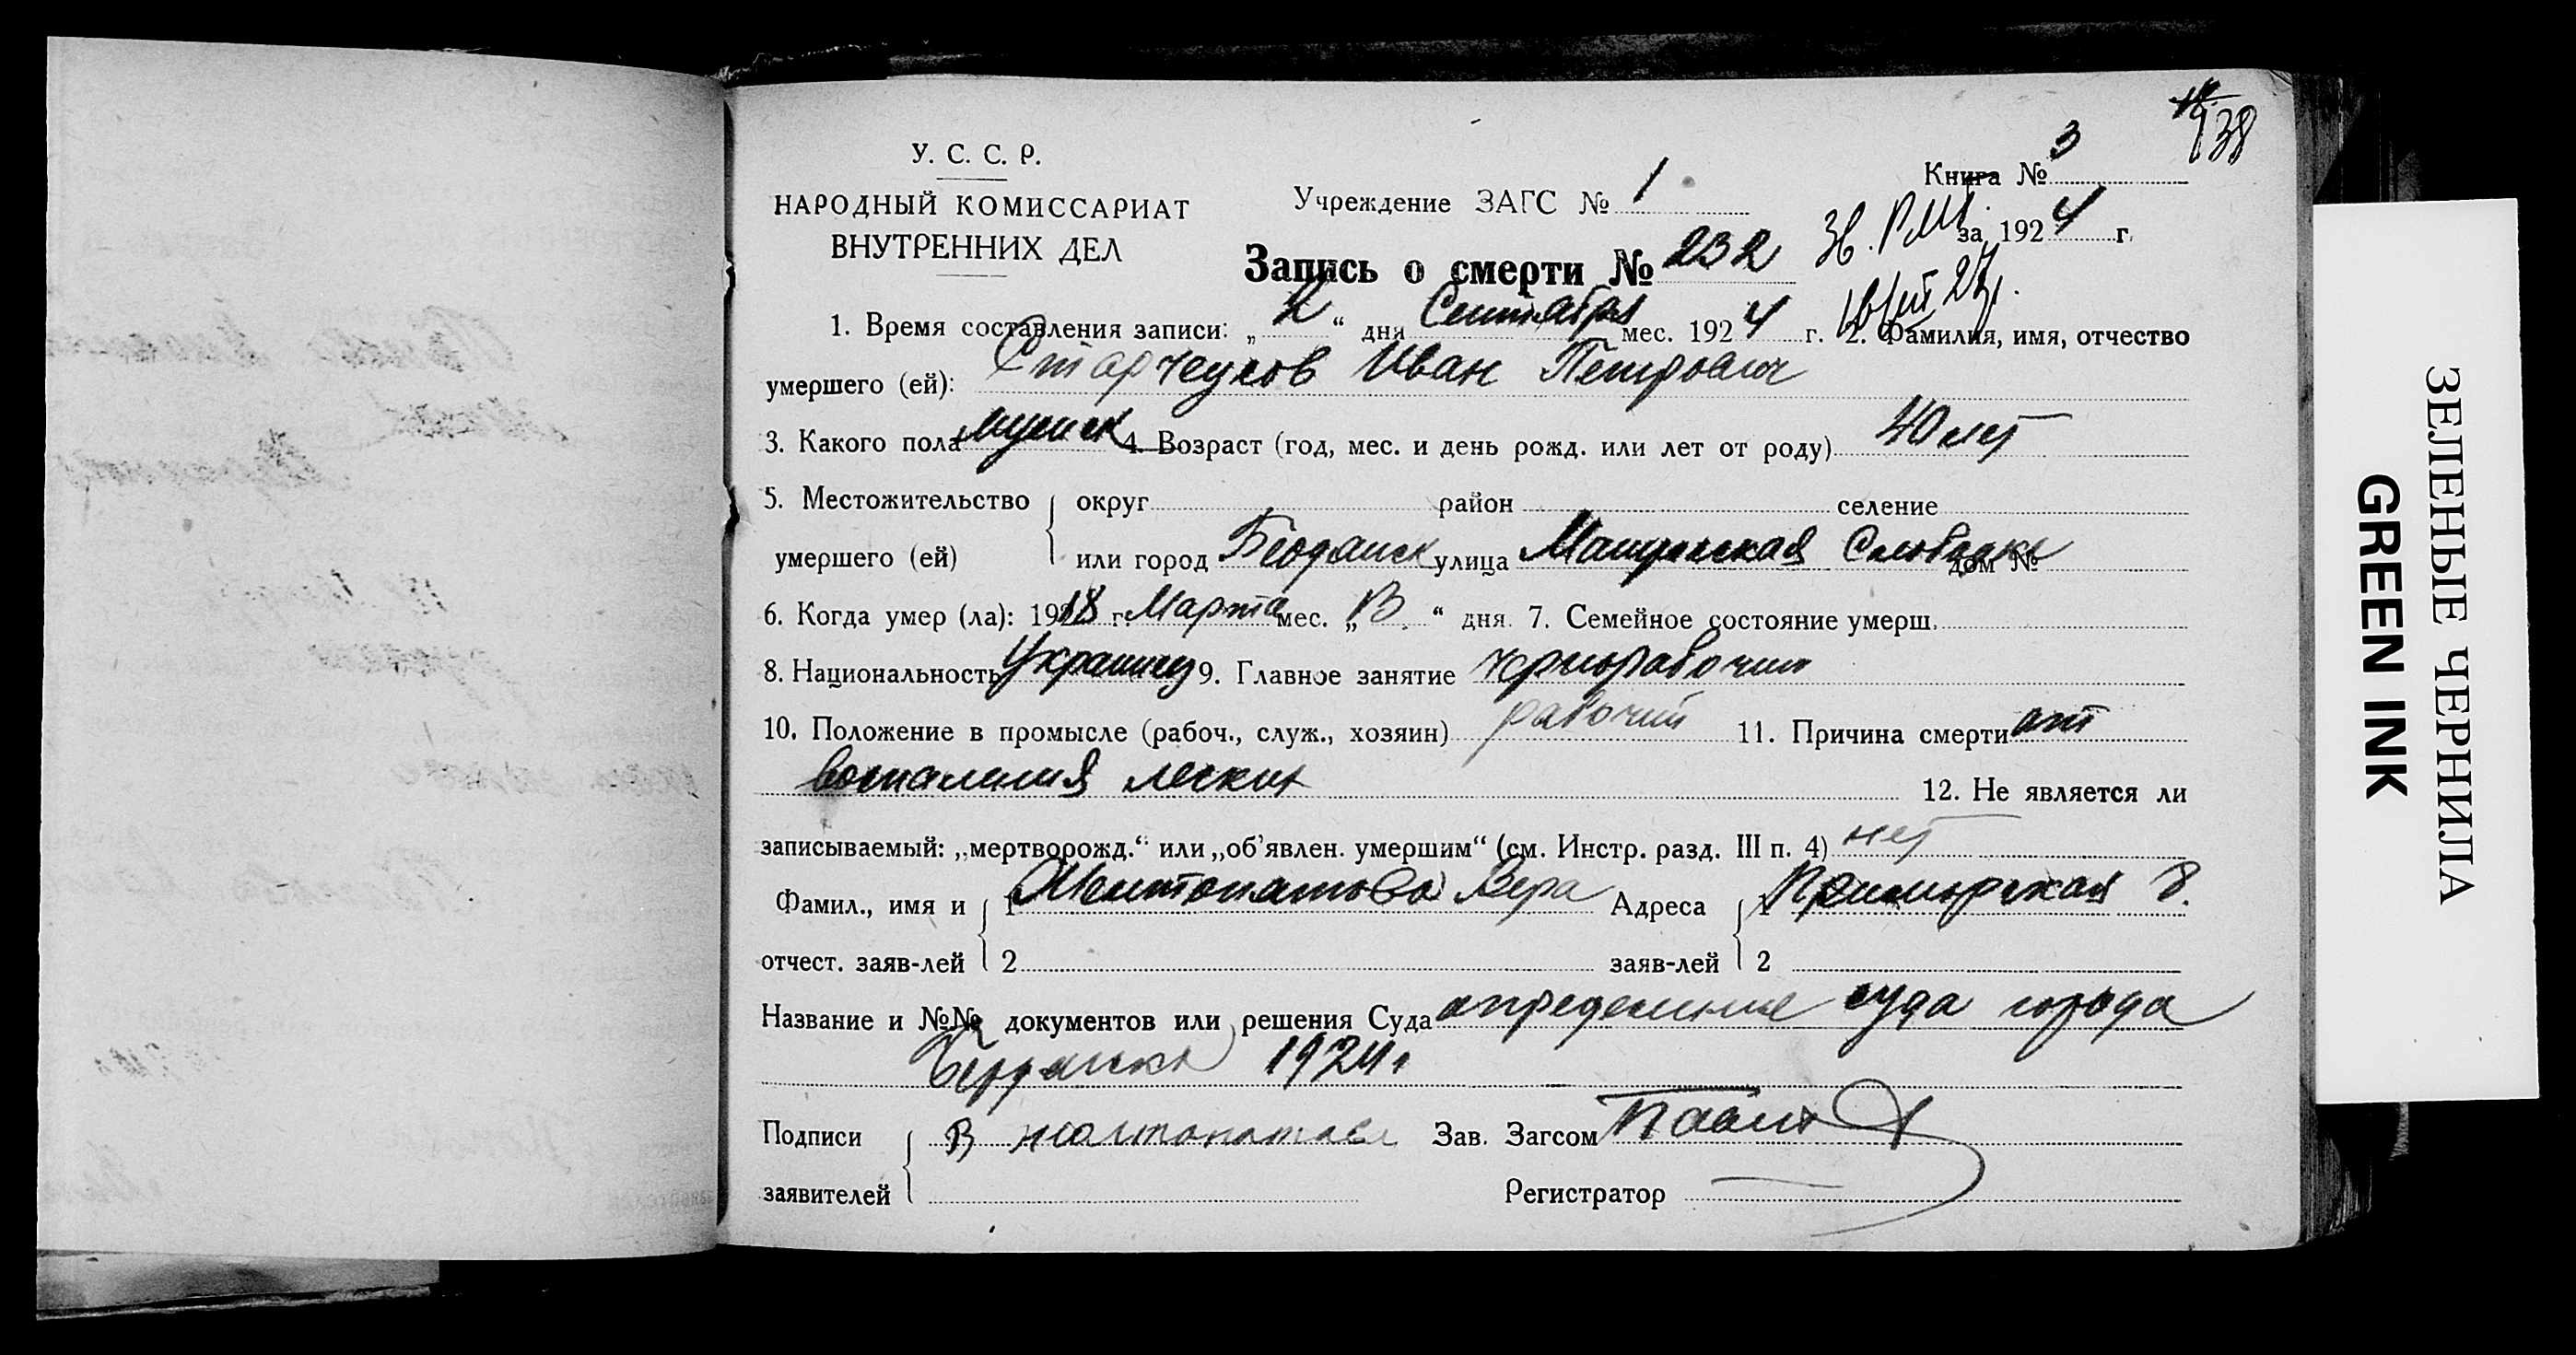 138
У. С. С. Р.
НАРОДНЫЙ КОМИССАРИАТ
ВНУТРЕННИХ ДЕЛ
Учреждение ЗАГС № 1
Книга № 3
за 1924 г.
Запись о смерти № 232
1. Время составления записи: „2“ дня Сентября мес. 1924 г. 2. Фамилия, имя, отчество
умершего (ей): Иван Петрович
3. Какого пола мужск 4. Возраст (год, мес. и день рожд. или лет от роду) 40 лет
5. Местожительство округ район селение
умершего (ей) или город Бердянск улица Слободка дом №
6. Когда умер (ла): 1918 г. Марта мес. „ “ дня 7. Семейное состояние умерш.
8. Национальность Украинец 9. Главное занятие чернорабочий
10. Положение в промысле (рабоч., служ., хозяин) рабочий 11. Причина смерти от
воспаления легких 12. Не является ли
записываемый: „мертворожд.“ или „об’явлен. умершим“ (см. Инстр. разд. III п. 4) нет
Фамил., имя и 1 Желтопатова Вера Адреса 1 Приморская 8.
отчест. заяв-лей 2 заяв-лей 2
Название и №№ документов или решения Суда определение суда города
Бердянска 1924 г
Подписи В Желтопатова Зав. Загсом
заявителей Регистратор
ЗЕЛЕНЫЕ ЧЕРНИЛА
GREEN INK